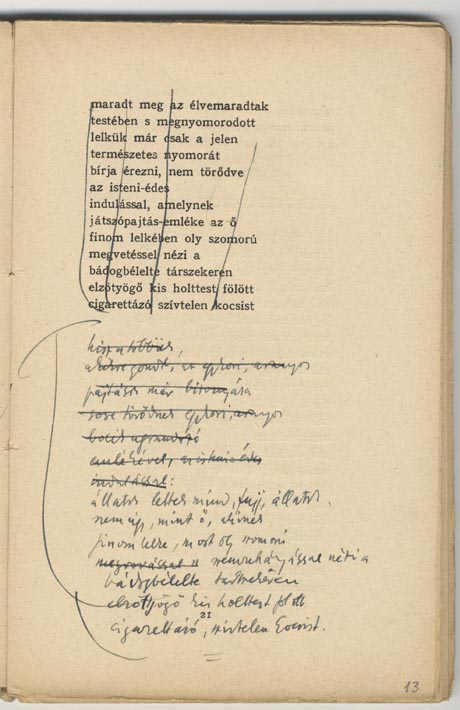 maradt meg az élvemaradtak
testében s megnyomorodott
lelkük már csak a jelen
természetes nyomorát
bírja érezni, nem törődve
az isteni-édes
indulással, amelynek
játszópajtás-emléke az ő
finom lelkében oly szomorú
megvetéssel nézi a
bádogbélelte társzekeren
elzötyögő kis holttest fölött
cigarettázó szívtelen kocsist
egykori, aranyos
pajtásuk már
sose törődnek egykori, aranyos
emlékével, az isteni-édes
indulással:
állatok lettek mind, fujj, állatok.
nem úgy, mint ő, akinek
finom lelke, most oly szomorú
szemrehányással nézi a
bádogbélelte társzekeren
elzötyögő kis holttest fölött
21
cigarettázó, szívtelen kocsist.
13